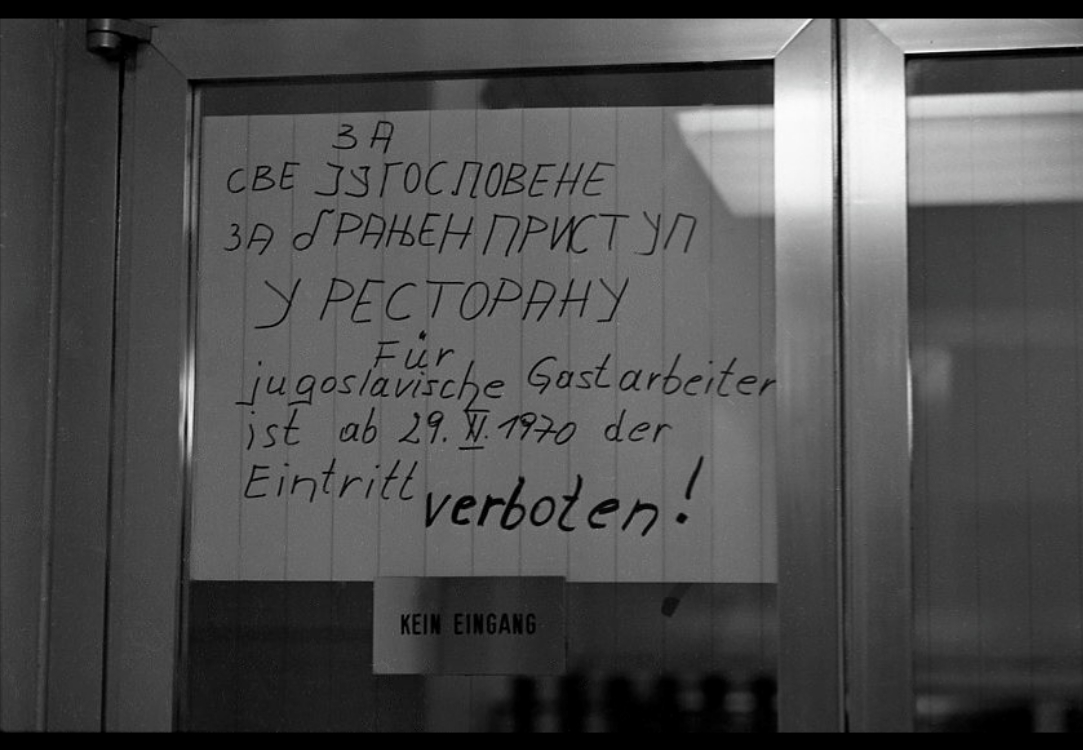 ЗА
СВЕ ЈУГОСЛОВЕНЕ
ЗА БРАЊЕН ПРИСТУП
У РЕСТОРАНУ
Für
jugoslavische Gastarbeiter
ist ab 29. XI. 1970 der
Eintritt verboten!
KEIN EINGANG